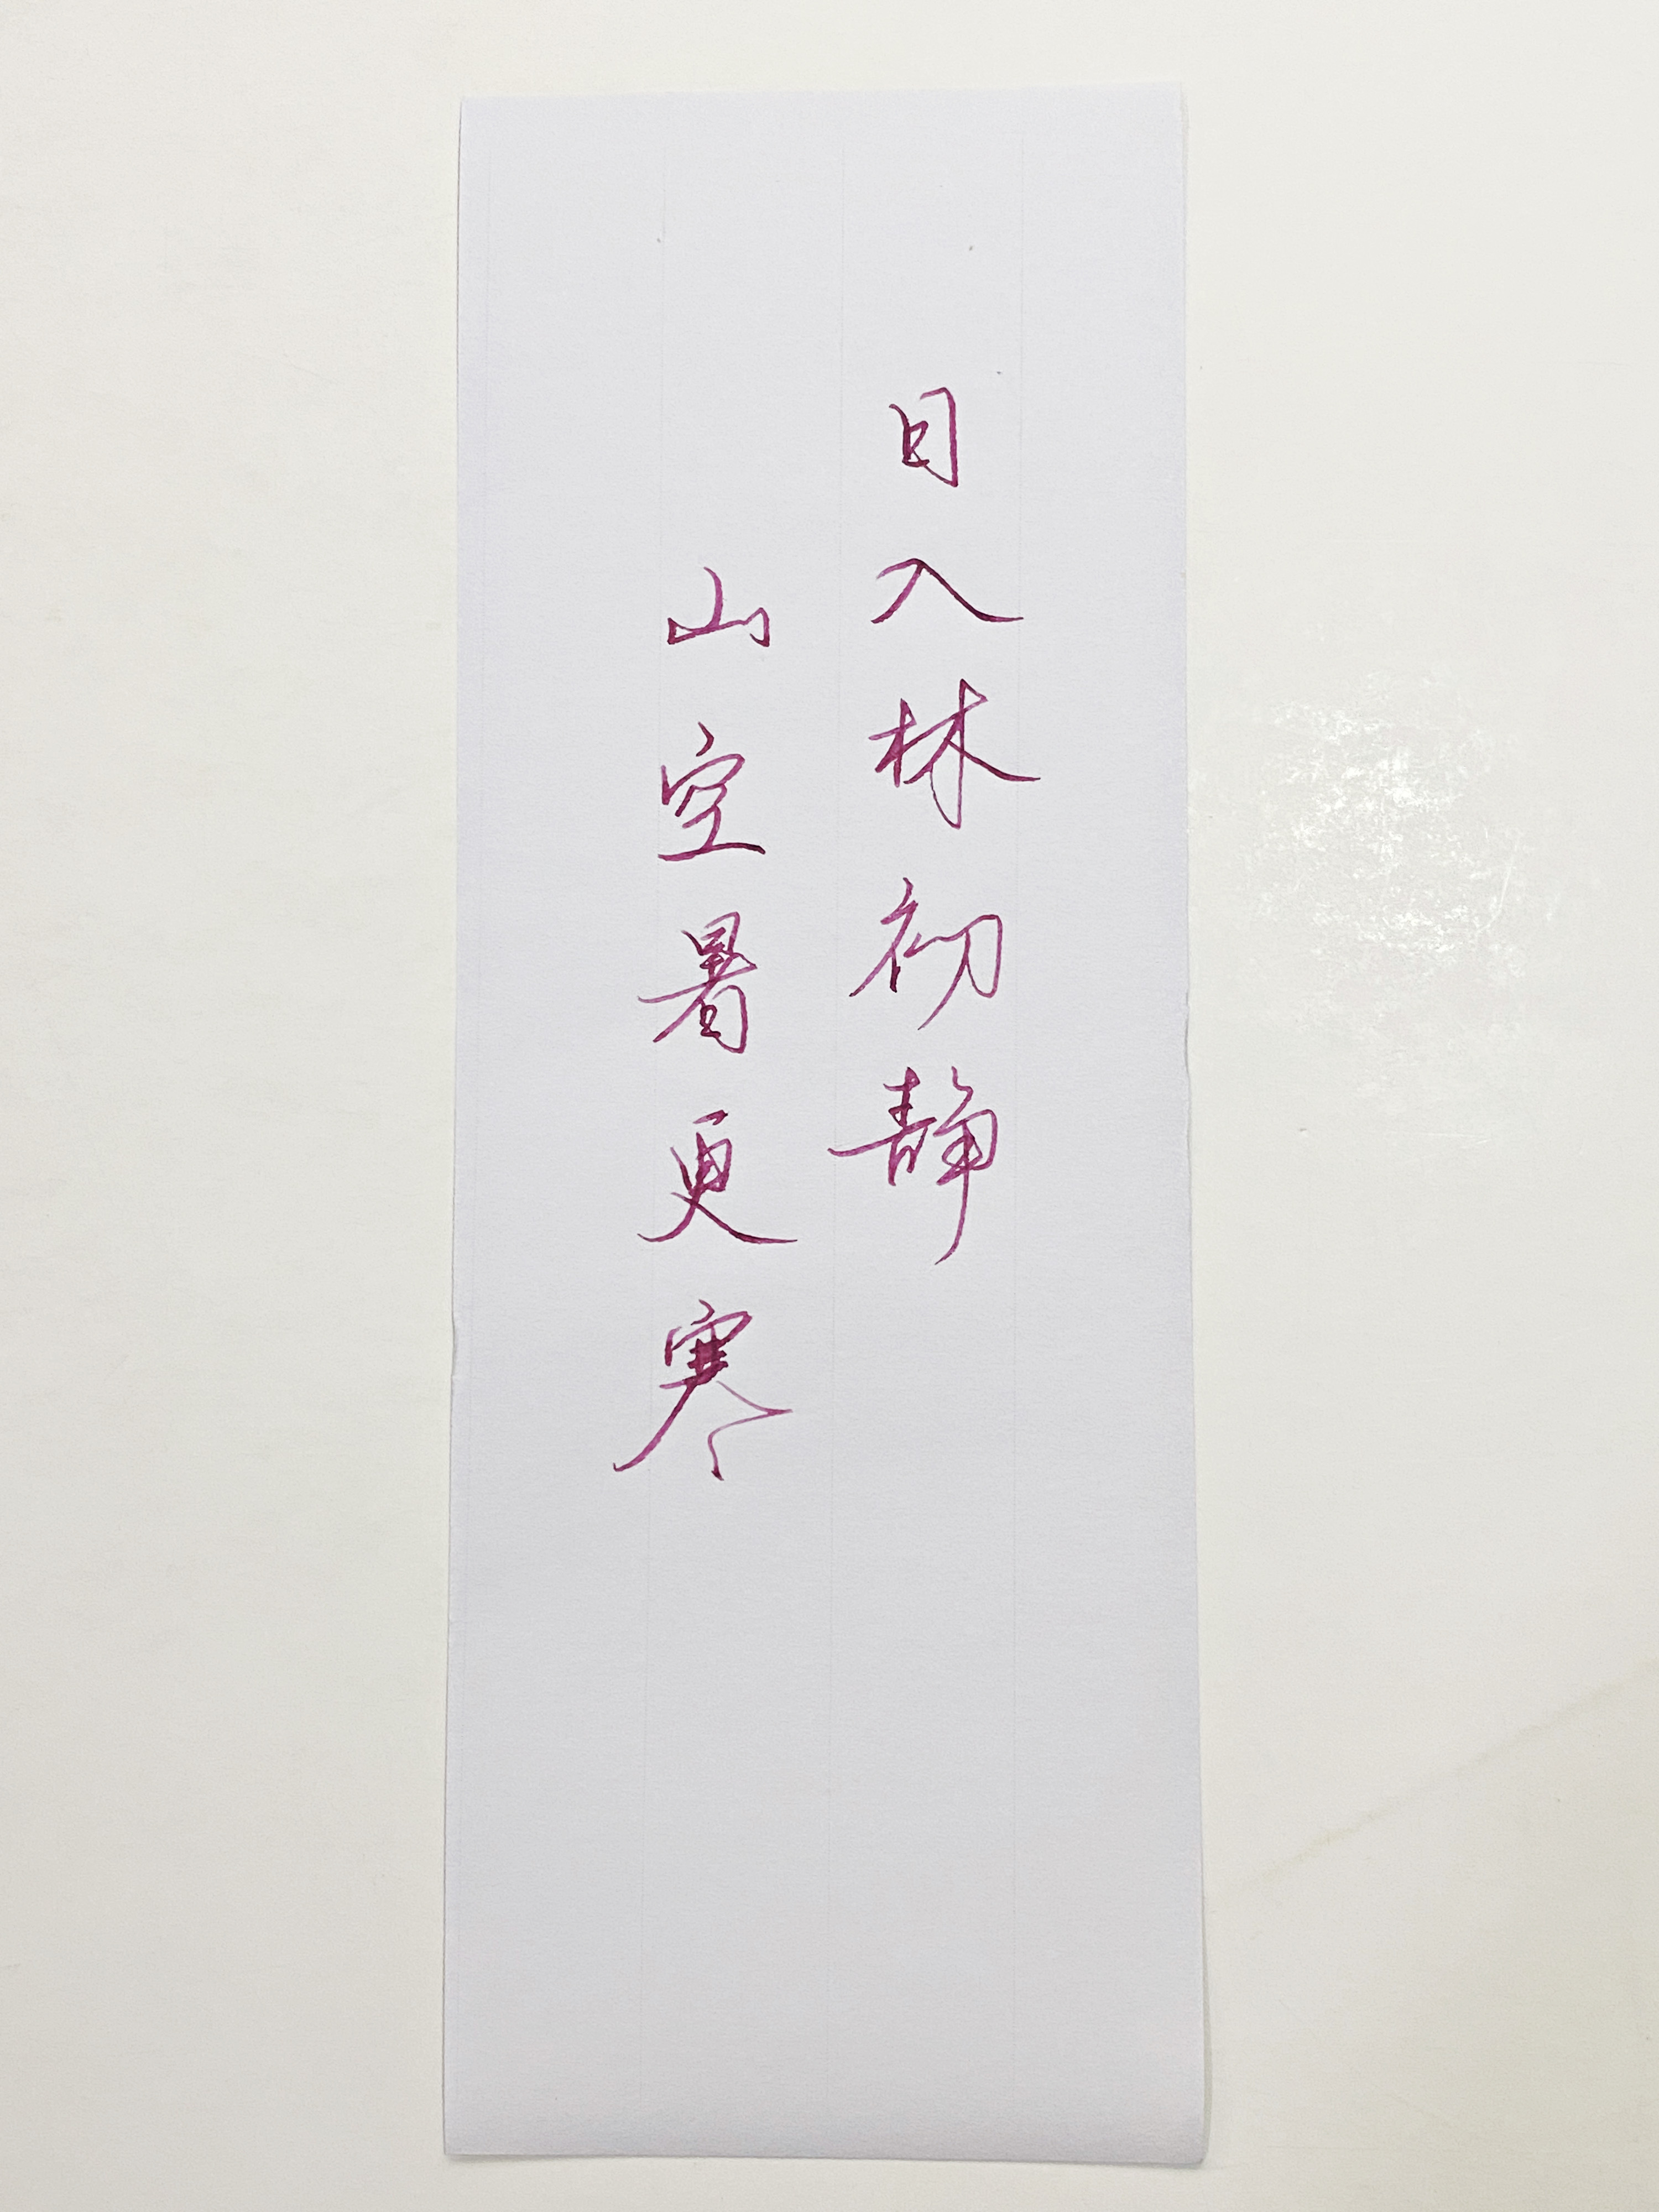 日入林初静
山空暑更寒